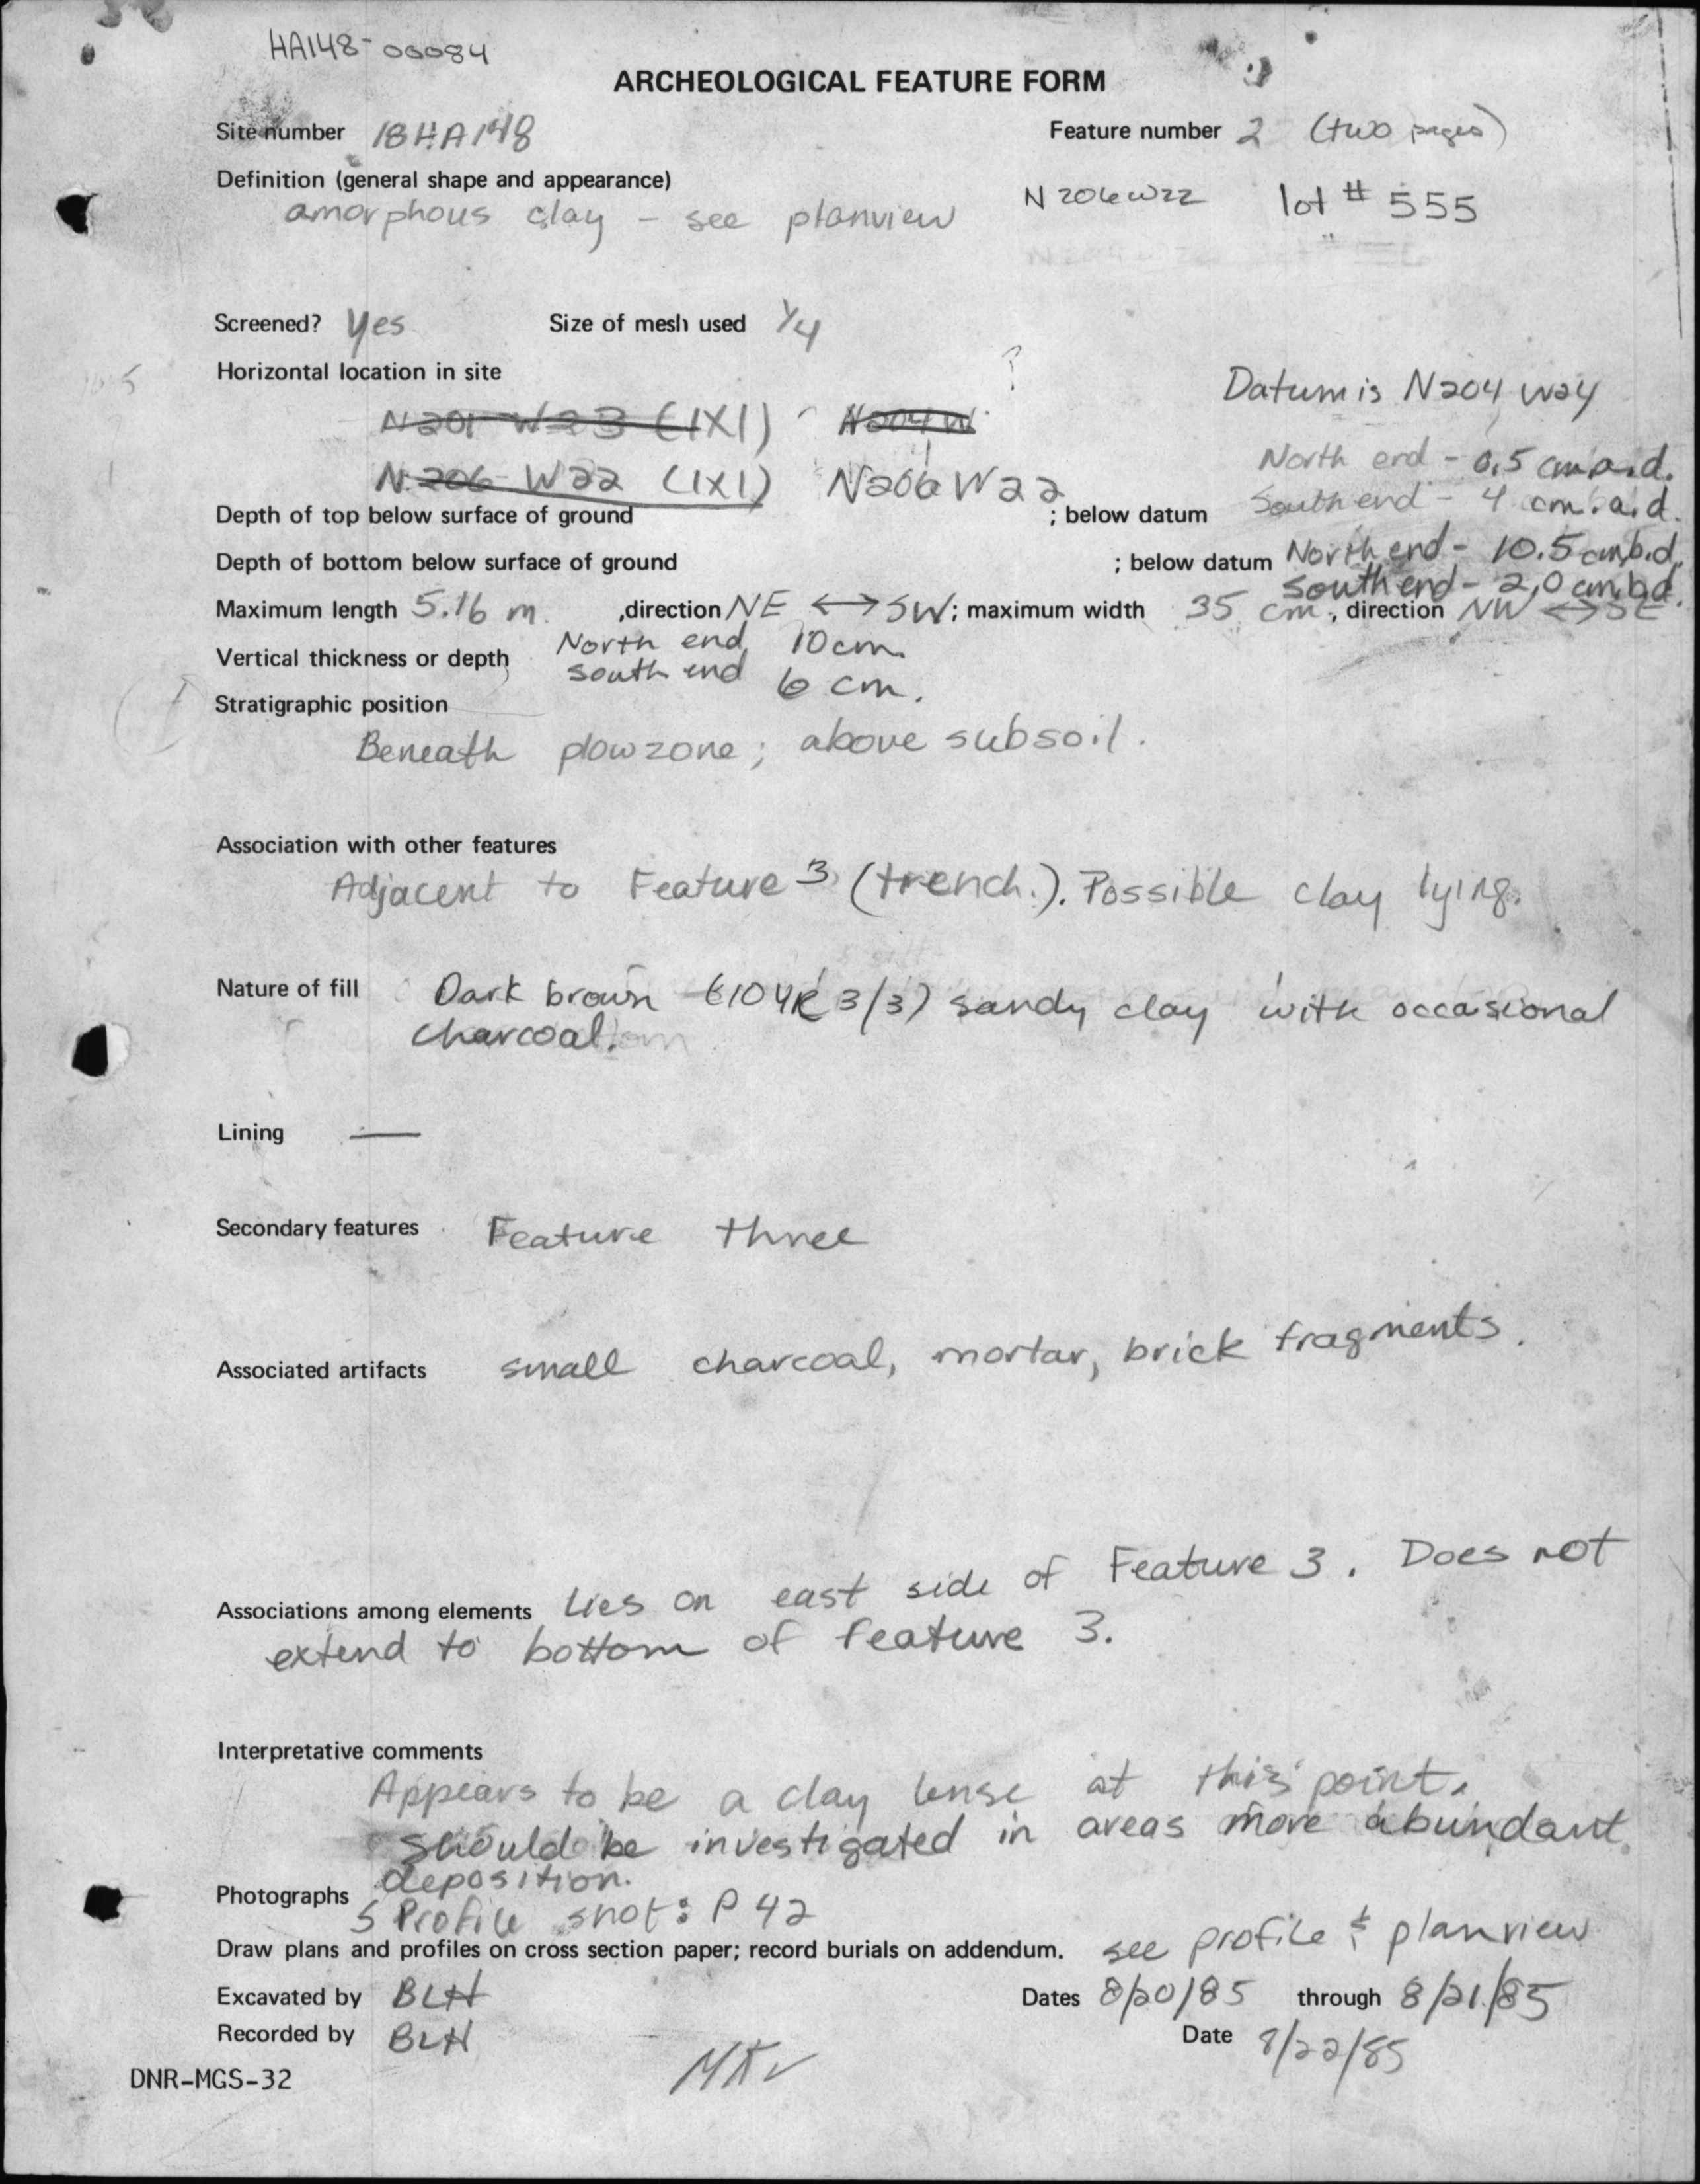 HA148-00084
ARCHEOLOGICAL FEATURE FORM
Site number 18HA148 Feature number 2 (two pages)
Definition (general shape and appearance) N206W22 lot # 555
amorphous clay - see planview
Screened? Yes Size of mesh used 1/4
Horizontal location in site ?
Datum is N204 W24
N201 W23 (1X1) N204W
N206 W22 (1X1) N206 W22
North end - 0.5 cm a.d.
Depth of top below surface of ground ; below datum South end - 4 cm. a.d.
Depth of bottom below surface of ground ; below datum North end - 10.5 cm b.d.
South end - 2.0 cm. b.d.
Maximum length 5.16 m. ,direction NE ↔ SW; maximum width 35 cm., direction NW ↔ SE
Vertical thickness or depth North end 10cm.
south end 6 cm.
Stratigraphic position
Beneath plowzone; above subsoil.
Association with other features
Adjacent to Feature 3 (trench.). Possible clay lying.
Nature of fill Dark brown (10YR 3/3) sandy clay with occasional
charcoal.
Lining —
Secondary features Feature three
Associated artifacts small charcoal, mortar, brick fragments.
Associations among elements Lies on east side of Feature 3. Does not
extend to bottom of feature 3.
Interpretative comments
Appears to be a clay lense at this point.
Should be investigated in areas more abundant
deposition.
Photographs S Profile shot: P 42
Draw plans and profiles on cross section paper; record burials on addendum. see profile & planview
Excavated by BLH Dates 8/20/85 through 8/21/85
Recorded by BLH Date 8/22/85
DNR-MGS-32